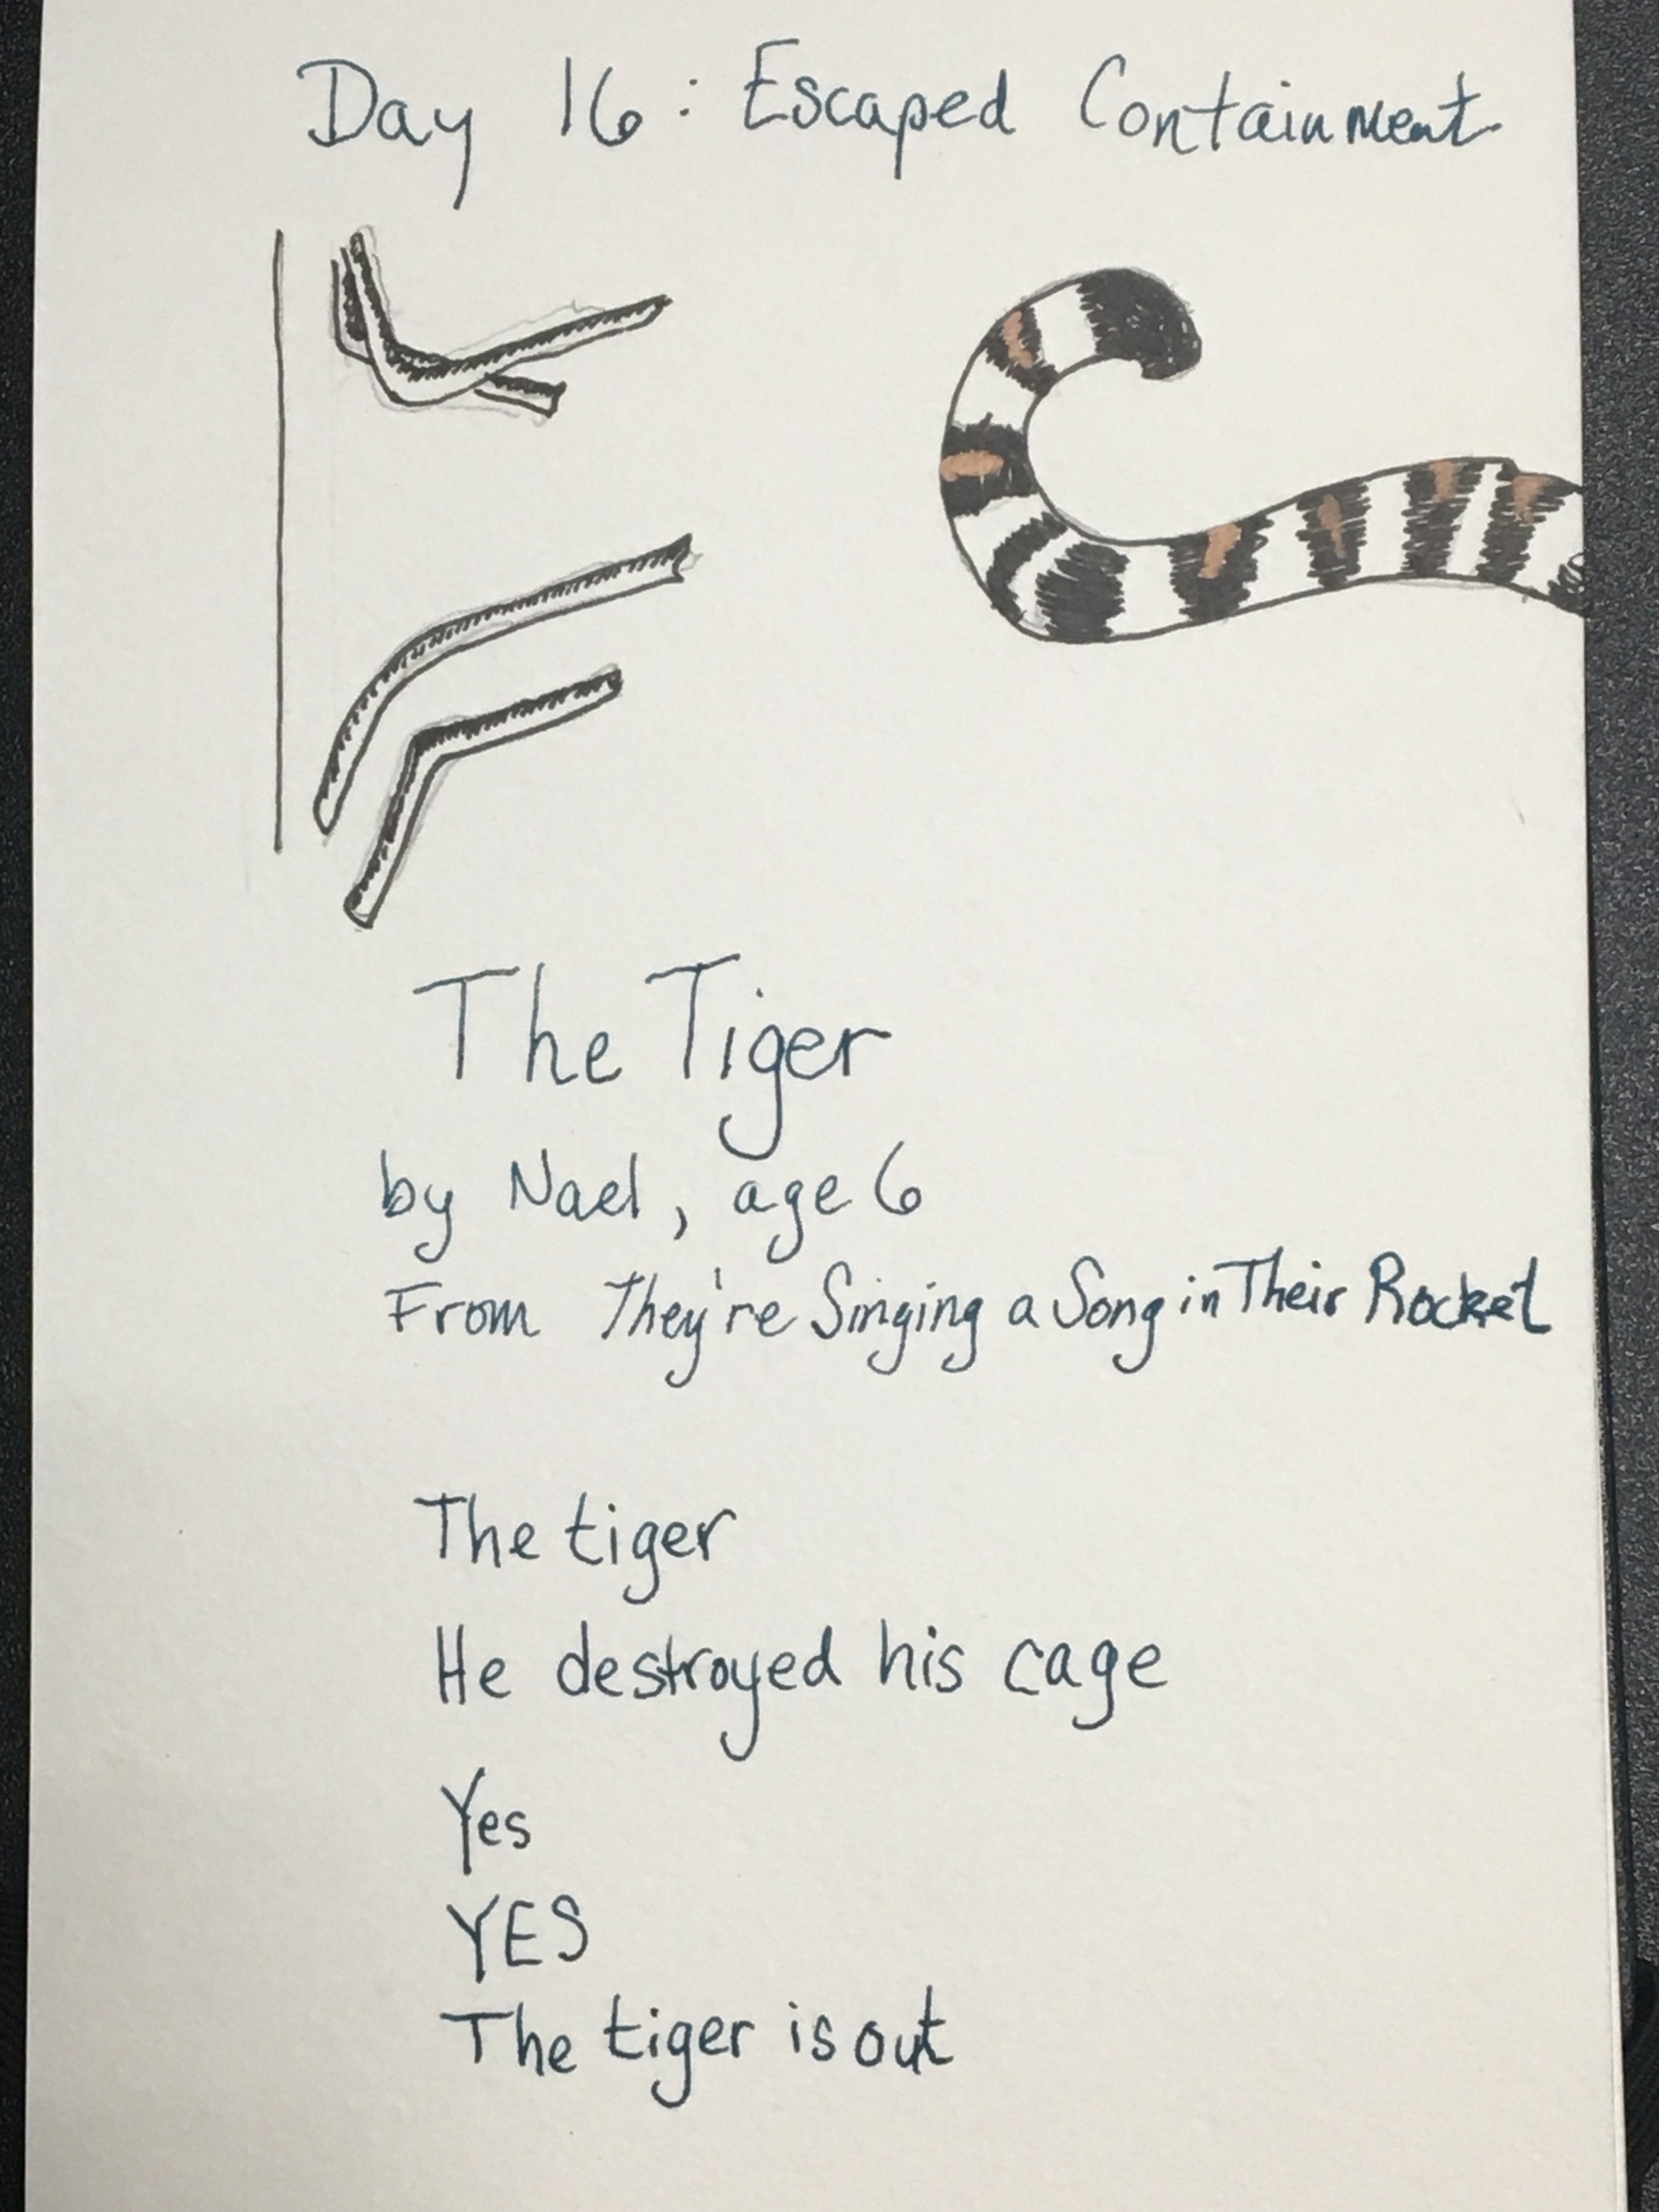 Day 16: Escaped Containment
The Tiger
by Nael, age 6
From They're Singing a Song in Their Rocket
The tiger
He destroyed his cage
Yes
YES
The tiger is out